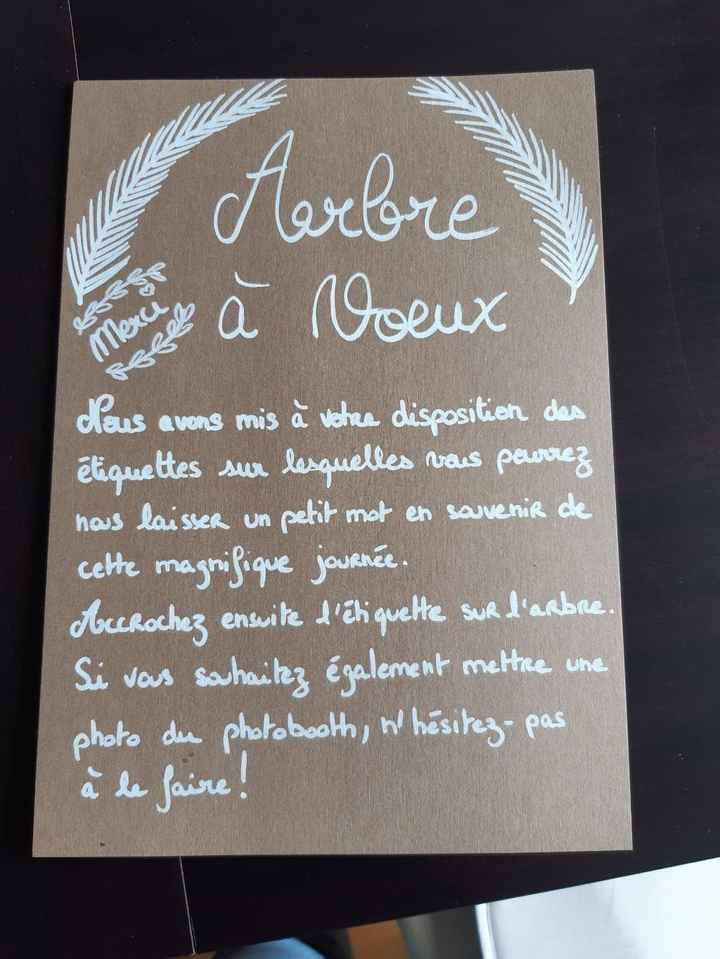 Arbre
à Voeux
Merci
Nous avons mis à votre disposition des
étiquettes sur lesquelles vous pourrez
nous laisser un petit mot en souvenir de
cette magnifique journée.
Accrochez ensuite l'étiquette sur l'arbre.
Si vous souhaitez également mettre une
photo du photobooth, n'hésitez-pas
à le faire!